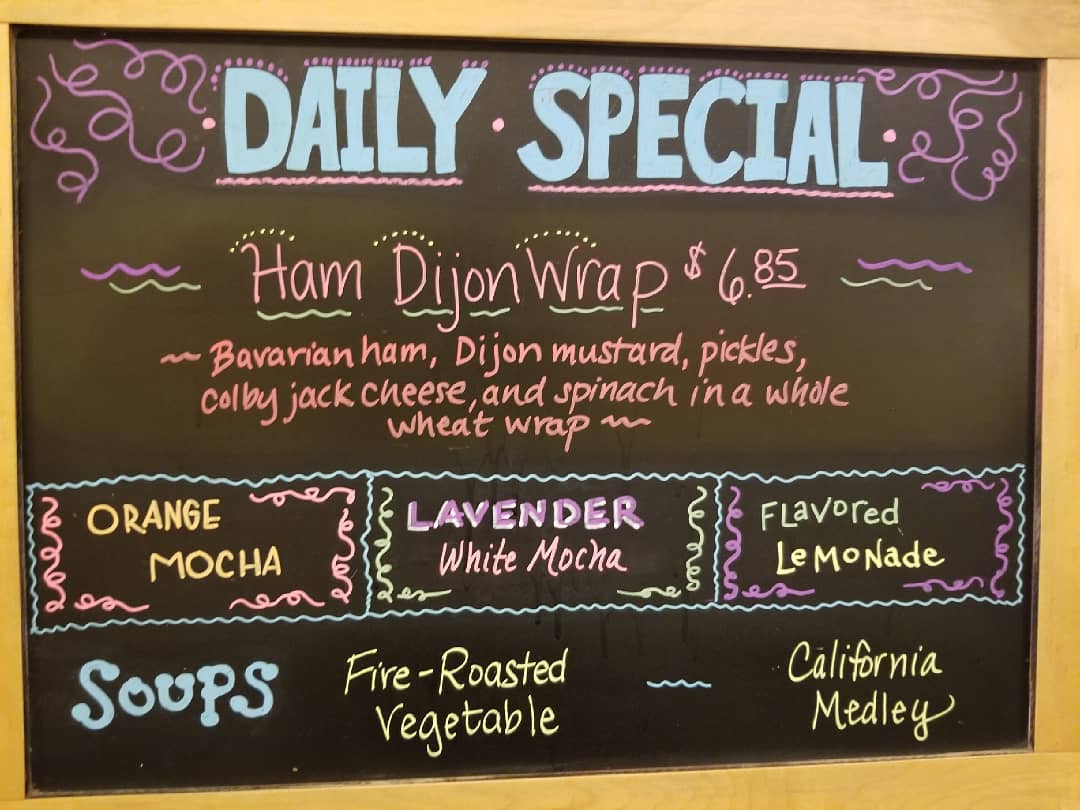 DAILY · SPECIAL ·
Ham Dijon Wrap $6.85
~ Bavarian ham, Dijon mustard, pickles,
colby jack cheese, and spinach in a whole
wheat wrap ~
ORANGE
MOCHA
LAVENDER
White Mocha
FLavored
LeMoNade
SOUPS
Fire-Roasted
Vegetable
California
Medley